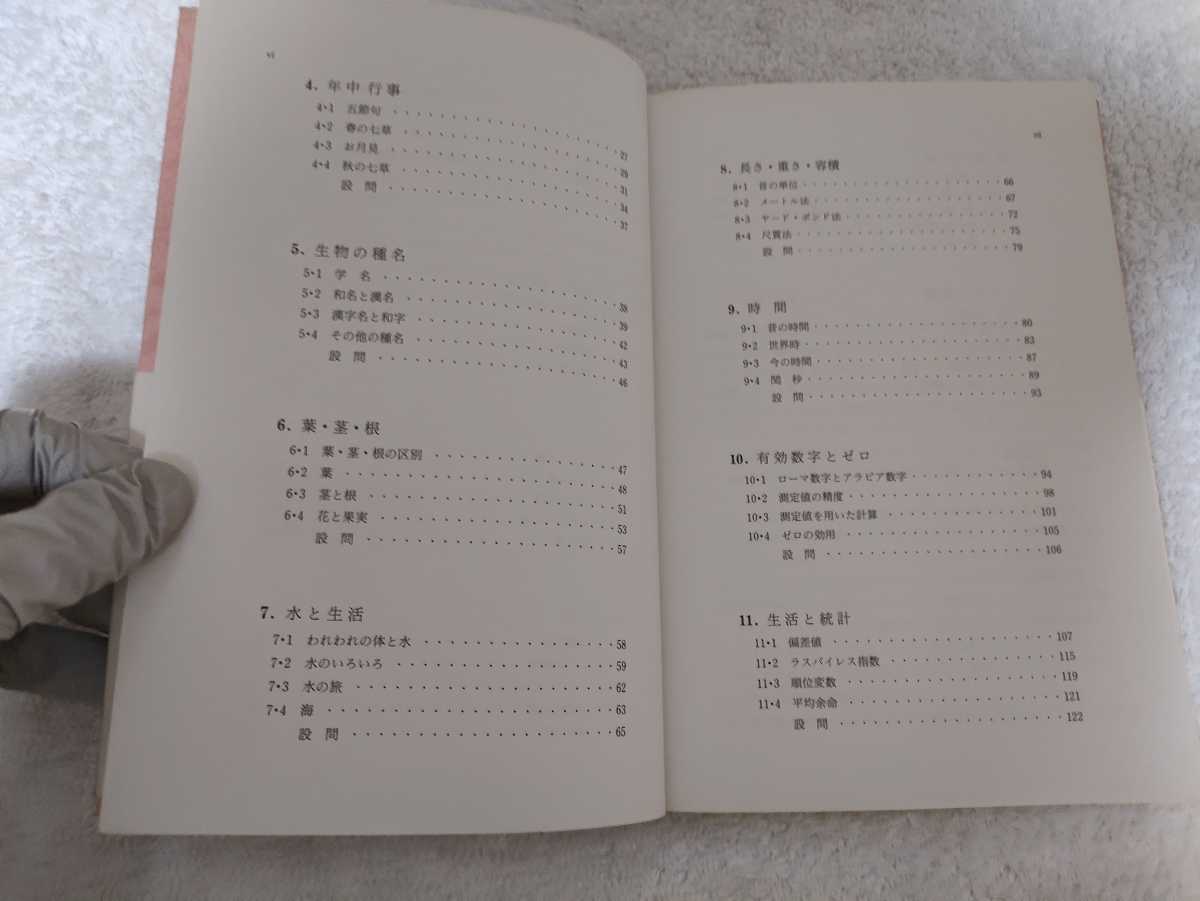 vi
4. 年中行事
4・1 五節句 ・・・・・・・・・・・・・・・・・・ 27
4・2 春の七草 ・・・・・・・・・・・・・・・・・・ 29
4・3 お月見 ・・・・・・・・・・・・・・・・・・ 31
4・4 秋の七草 ・・・・・・・・・・・・・・・・・・ 34
設 問 ・・・・・・・・・・・・・・・・・・ 37
5. 生物の種名
5・1 学 名 ・・・・・・・・・・・・・・・・・・ 38
5・2 和名と漢名 ・・・・・・・・・・・・・・・・・・ 39
5・3 漢字名と和字 ・・・・・・・・・・・・・・・・・・ 42
5・4 その他の種名 ・・・・・・・・・・・・・・・・・・ 43
設 問 ・・・・・・・・・・・・・・・・・・ 46
6. 葉・茎・根
6・1 葉・茎・根の区別 ・・・・・・・・・・・・・・ 47
6・2 葉 ・・・・・・・・・・・・・・・・・・ 48
6・3 茎と根 ・・・・・・・・・・・・・・・・・・ 51
6・4 花と果実 ・・・・・・・・・・・・・・・・・・ 53
設 問 ・・・・・・・・・・・・・・・・・・ 57
7. 水と生活
7・1 われわれの体と水 ・・・・・・・・・・・・・・ 58
7・2 水のいろいろ ・・・・・・・・・・・・・・・・ 59
7・3 水の旅 ・・・・・・・・・・・・・・・・・・ 62
7・4 海 ・・・・・・・・・・・・・・・・・・ 63
設 問 ・・・・・・・・・・・・・・・・・・ 65
vii
8. 長さ・重さ・容積
8・1 昔の単位 ・・・・・・・・・・・・・・・・・・ 66
8・2 メートル法 ・・・・・・・・・・・・・・・・・・ 67
8・3 ヤード・ポンド法 ・・・・・・・・・・・・・・ 72
8・4 尺貫法 ・・・・・・・・・・・・・・・・・・ 75
設 問 ・・・・・・・・・・・・・・・・・・ 79
9. 時 間
9・1 昔の時間 ・・・・・・・・・・・・・・・・・・ 80
9・2 世界時 ・・・・・・・・・・・・・・・・・・ 83
9・3 今の時間 ・・・・・・・・・・・・・・・・・・ 87
9・4 閏 秒 ・・・・・・・・・・・・・・・・・・ 89
設 問 ・・・・・・・・・・・・・・・・・・ 93
10. 有効数字とゼロ
10・1 ローマ数字とアラビア数字 ・・・・・・・・・・ 94
10・2 測定値の精度 ・・・・・・・・・・・・・・・・ 98
10・3 測定値を用いた計算 ・・・・・・・・・・・・ 101
10・4 ゼロの効用 ・・・・・・・・・・・・・・・・ 105
設 問 ・・・・・・・・・・・・・・・・・・ 106
11. 生活と統計
11・1 偏差値 ・・・・・・・・・・・・・・・・・・ 107
11・2 ラスパイレス指数 ・・・・・・・・・・・・・・ 115
11・3 順位変数 ・・・・・・・・・・・・・・・・・・ 119
11・4 平均余命 ・・・・・・・・・・・・・・・・・・ 121
設 問 ・・・・・・・・・・・・・・・・・・ 122